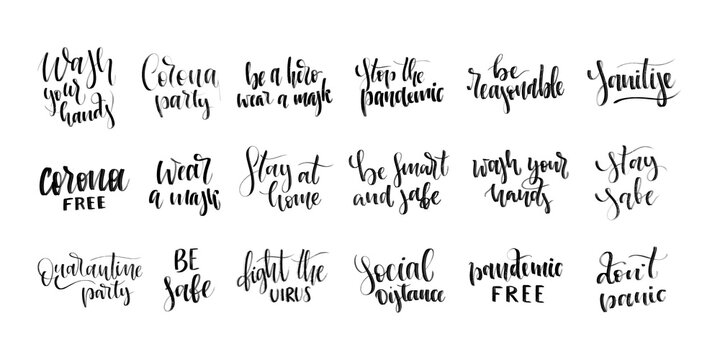 Wash
your
hands
Corona
party
be a hero
wear a mask
Stop the
pandemic
be
reasonable
Sanitise
corona
FREE
wear
a mask
Stay at
home
be smart
and safe
wash your
hands
Stay
Safe
Quarantine
party
BE
Safe
fight the
VIRUS
Social
Distance
pandemic
FREE
don't
panic